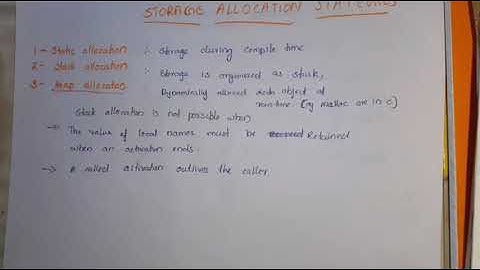 STORAGE ALLOCATION
1 - Static allocation :- Storage during compile time
2 - Stack allocation :- Storage is organized as stack,
3 - Heap allocation Dynamically allocated data object at
run-time (eg malloc are in c)
Stack allocation is not possible when
→ The value of local names must be Retained
when an activation ends.
→ A called activation outlives the caller